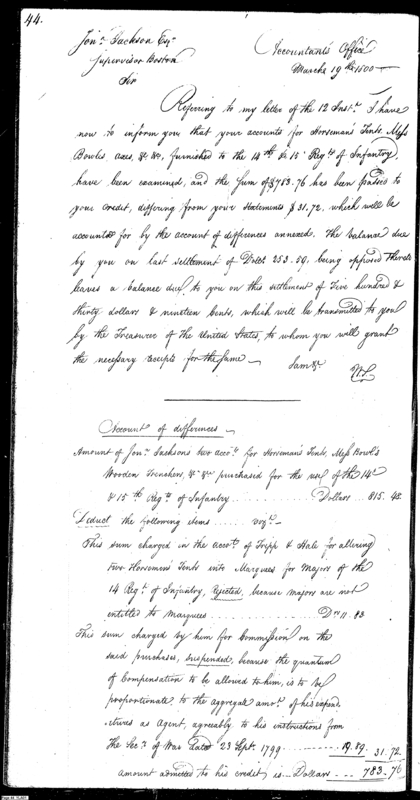 44.
Jonn. Jackson Esqr.
Accountants Office
Supervisor Boston
March 19th 1800
Sir
Referring to my letter of the 12 Inst. I have
now to inform you that your accounts for Horseman's Tents, Mess
Bowls, axes, &c &c, furnished to the 14th & 15 Regts of Infantry,
have been examined, and the sum of $783.76 has been passed to
your credit, differing from your statements $31.72, which will be
accounted for by the account of differences annexed. The balance due
by you on last settlement of Dolls 253.59, being opposed thereto
leaves a balance due to you on this settlement of Five hundred &
thirty dollars & nineteen Cents, which will be transmitted to you
by the Treasurer of the United States, to whom you will grant
the necessary receipts for the same
I am &c.
Account of differences
Amount of Jonn. Jacksons two accots for Horseman's Tents, Mess Bowls
Wooden Trenchers, &c &c purchased for the use of the 14th
& 15th Regts of Infantry . . . Dollars . . 815.48
Deduct the following items . . . vizt
This sum charged in the accots. of Tripp & Hale for altering
two Horsemens Tents into Marquees for Majors of the
14 Regt. of Infantry, Rejected, because Majors are not
entitled to Marquees . . . Drs 11.83
This sum charged by him for Commission on the
said purchases, suspended, because the quantum
of Compensation to be allowed to him, is to be
proportionate to the aggregate amot. of his expend-
itures as Agent, agreeably to his instructions from
the Secy. of War dated 23 Sept. 1799 . . . 19.89. 31.72
amount admitted to his credit is . . Dollars . . . 783.76